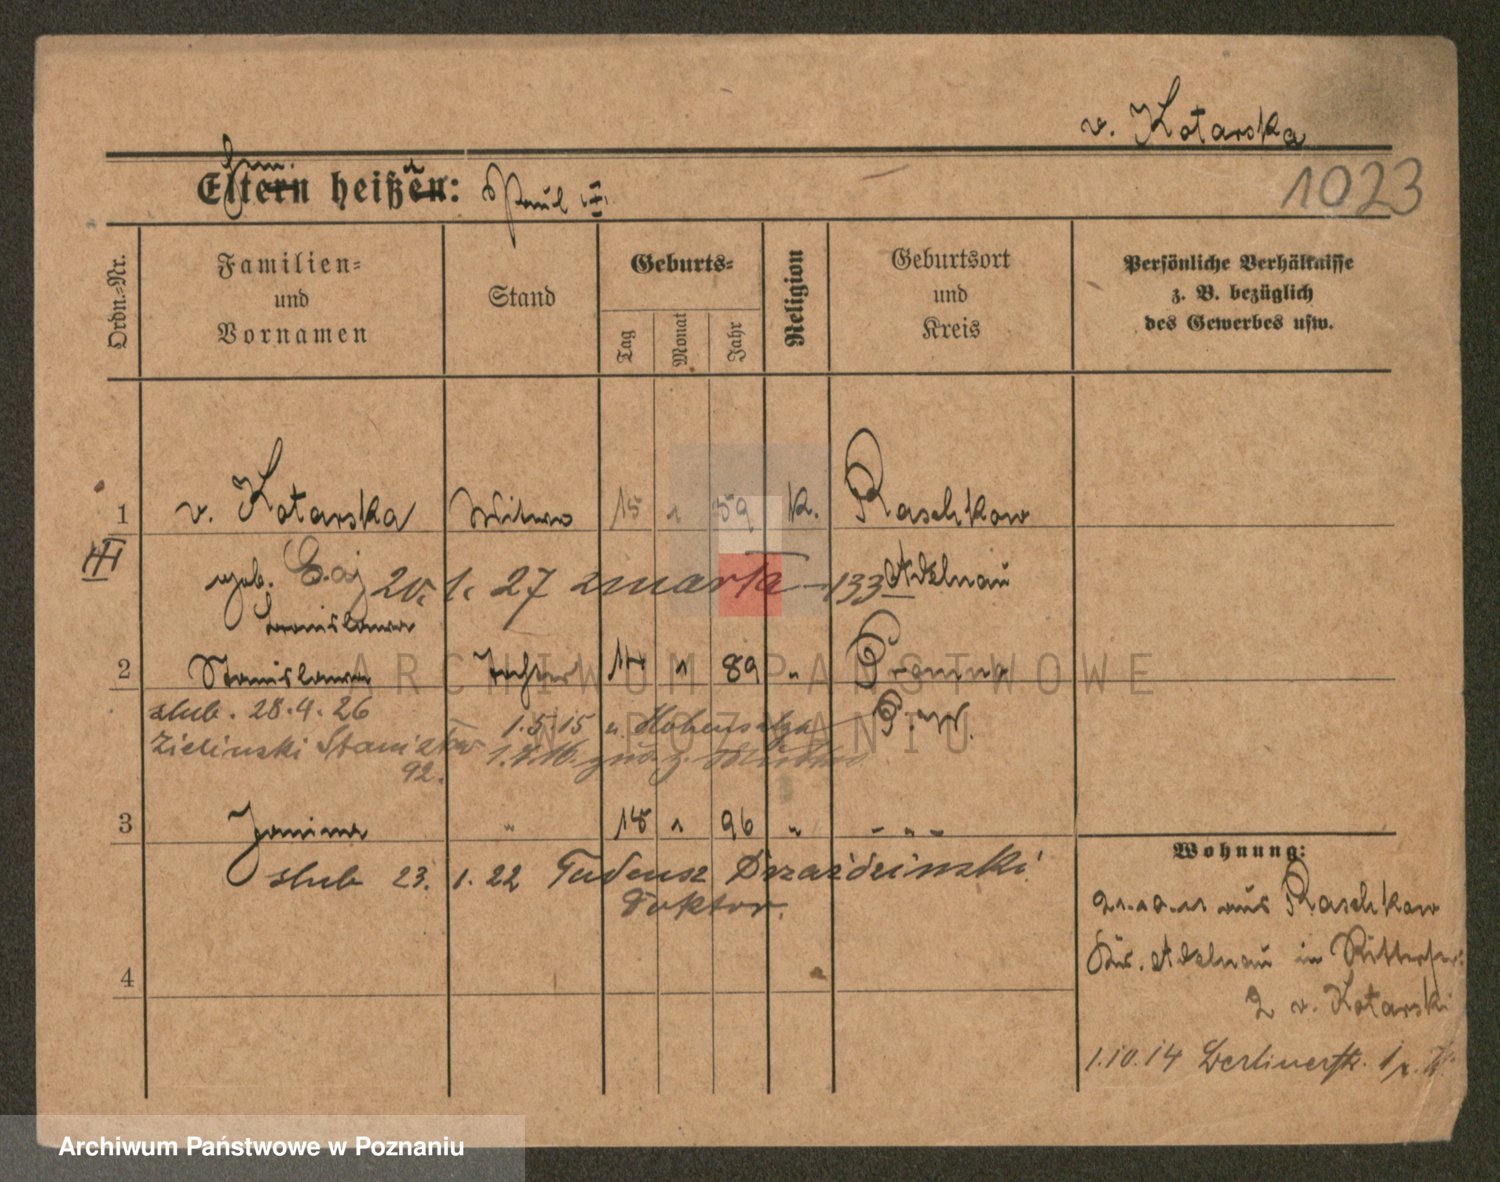 v. Kotarska
1023
Eltern heißen: Paul
Ordn.=Nr.
Familien=
und
Vornamen
Stand
Geburts=
Tag
Monat
Jahr
Religion
Geburtsort
und
Kreis
Persönliche Verhältnisse
z. B. bezüglich
des Gewerbes usw.
1 v. Kotarska Witwe 15 1 59 k. Raschkow
geb. 20. 1. 27 zmarła 133 Adelnau
Stanislawa
2 Stanislawa Tochter 14 1 89 " Pronina
ślub. 28.4.26 1.5.15 n. Hohensalza P. W.
Zielinski Stanisław
92.
3 Janina " 18 1 96 " - " -
ślub 23. 1. 22 Tadeusz
Doktor.
4
Wohnung:
21.10.11 aus Raschkow
Kr. Adelnau in
2 v. Kotarski
1.10.14 Berlinerstr.
ARCHIWUM PAŃSTWOWE
W POZNANIU
Archiwum Państwowe w Poznaniu